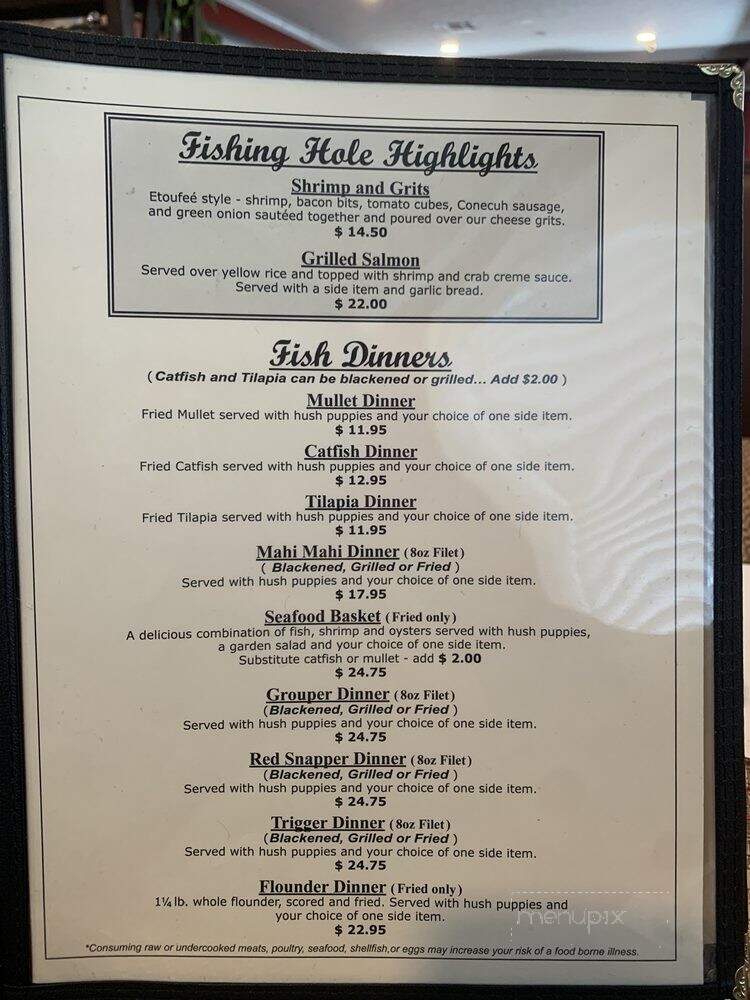 Fishing Hole Highlights
Shrimp and Grits
Etoufeé style - shrimp, bacon bits, tomato cubes, Conecuh sausage,
and green onion sautéed together and poured over our cheese grits.
$ 14.50
Grilled Salmon
Served over yellow rice and topped with shrimp and crab creme sauce.
Served with a side item and garlic bread.
$ 22.00
Fish Dinners
( Catfish and Tilapia can be blackened or grilled... Add $2.00 )
Mullet Dinner
Fried Mullet served with hush puppies and your choice of one side item.
$ 11.95
Catfish Dinner
Fried Catfish served with hush puppies and your choice of one side item.
$ 12.95
Tilapia Dinner
Fried Tilapia served with hush puppies and your choice of one side item.
$ 11.95
Mahi Mahi Dinner ( 8oz Filet )
( Blackened, Grilled or Fried )
Served with hush puppies and your choice of one side item.
$ 17.95
Seafood Basket ( Fried only )
A delicious combination of fish, shrimp and oysters served with hush puppies,
a garden salad and your choice of one side item.
Substitute catfish or mullet - add $ 2.00
$ 24.75
Grouper Dinner ( 8oz Filet )
( Blackened, Grilled or Fried )
Served with hush puppies and your choice of one side item.
$ 24.75
Red Snapper Dinner ( 8oz Filet )
( Blackened, Grilled or Fried )
Served with hush puppies and your choice of one side item.
$ 24.75
Trigger Dinner ( 8oz Filet )
( Blackened, Grilled or Fried )
Served with hush puppies and your choice of one side item.
$ 24.75
Flounder Dinner ( Fried only )
1¼ lb. whole flounder, scored and fried. Served with hush puppies and
your choice of one side item.
$ 22.95
*Consuming raw or undercooked meats, poultry, seafood, shellfish,or eggs may increase your risk of a food borne illness.
menupix